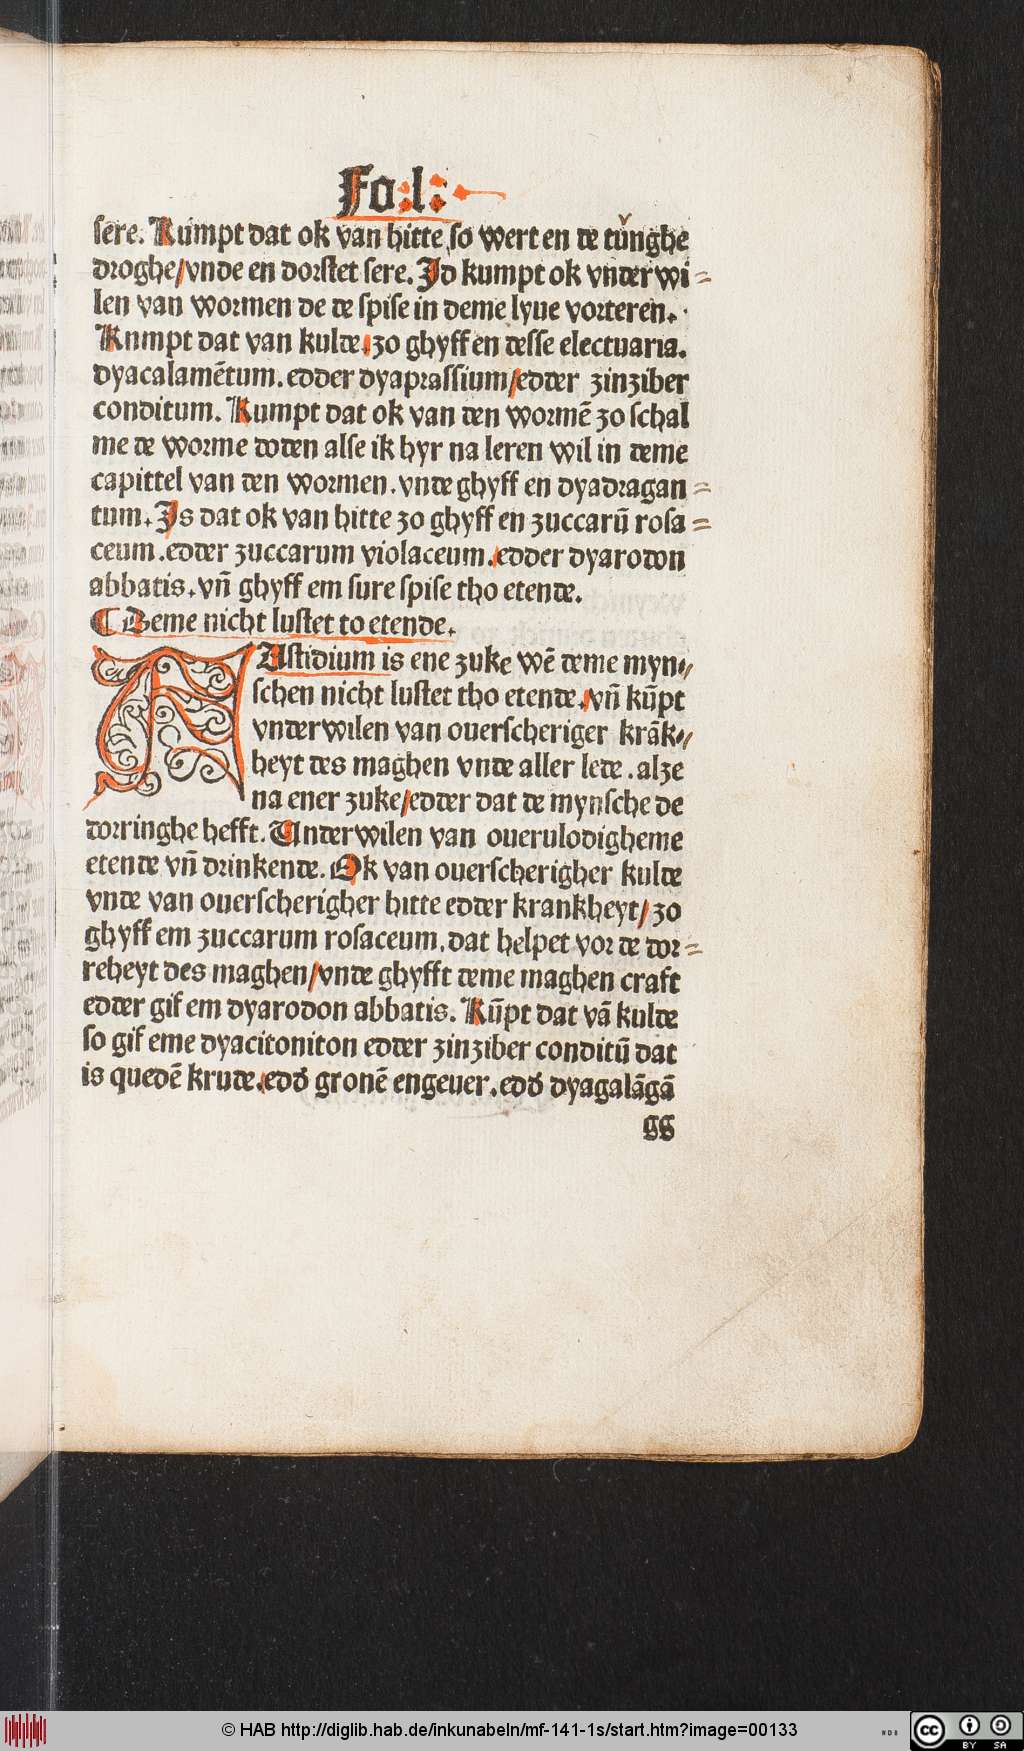 Fo.l.
sere. Kumpt dat ok van hitte so wert en de tunghe
droghe/vnde en dorstet sere. Id kumpt ok vnder wi=
len van wormen de de spise in deme lyue vorteren.
Kumpt dat van kulde. zo ghyff en desse electuaria.
dyacalamētum. edder dyaprassium/edder zinziber
conditum. Kumpt dat ok van den wormē zo schal
me de worme doden alse ik hyr na leren wil in deme
capittel van den wormen. vnde ghyff en dyadragan=
tum. Is dat ok van hitte zo ghyff en zuccarū rosa=
ceum. edder zuccarum violaceum. edder dyarodon
abbatis. vn̄ ghyff em sure spise tho etende.
¶ Deme nicht lustet to etende.
FAstidium is ene zuke wē deme myn//
schen nicht lustet tho etende. vn̄ kūpt
vnderwilen van ouerscheriger krāk//
heyt des maghen vnde aller lede. alze
na ener zuke/edder dat de mynsche de
dorringhe hefft. Vnderwilen van ouerulodigheme
etende vn̄ drinkende. Ok van ouerscherigher kulde
vnde van ouerscherigher hitte edder krankheyt/zo
ghyff em zuccarum rosaceum. dat helpet vor de dor=
reheyt des maghen/vnde ghyfft deme maghen craft
edder gif em dyarodon abbatis. Kūpt dat vā kulde
so gif eme dyacitoniton edder zinziber conditū dat
is quedē krude. edd' gronē engeuer. edd' dyagalāgā
gg
© HAB http://diglib.hab.de/inkunabeln/mf-141-1s/start.htm?image=00133
WDB
cc BY SA